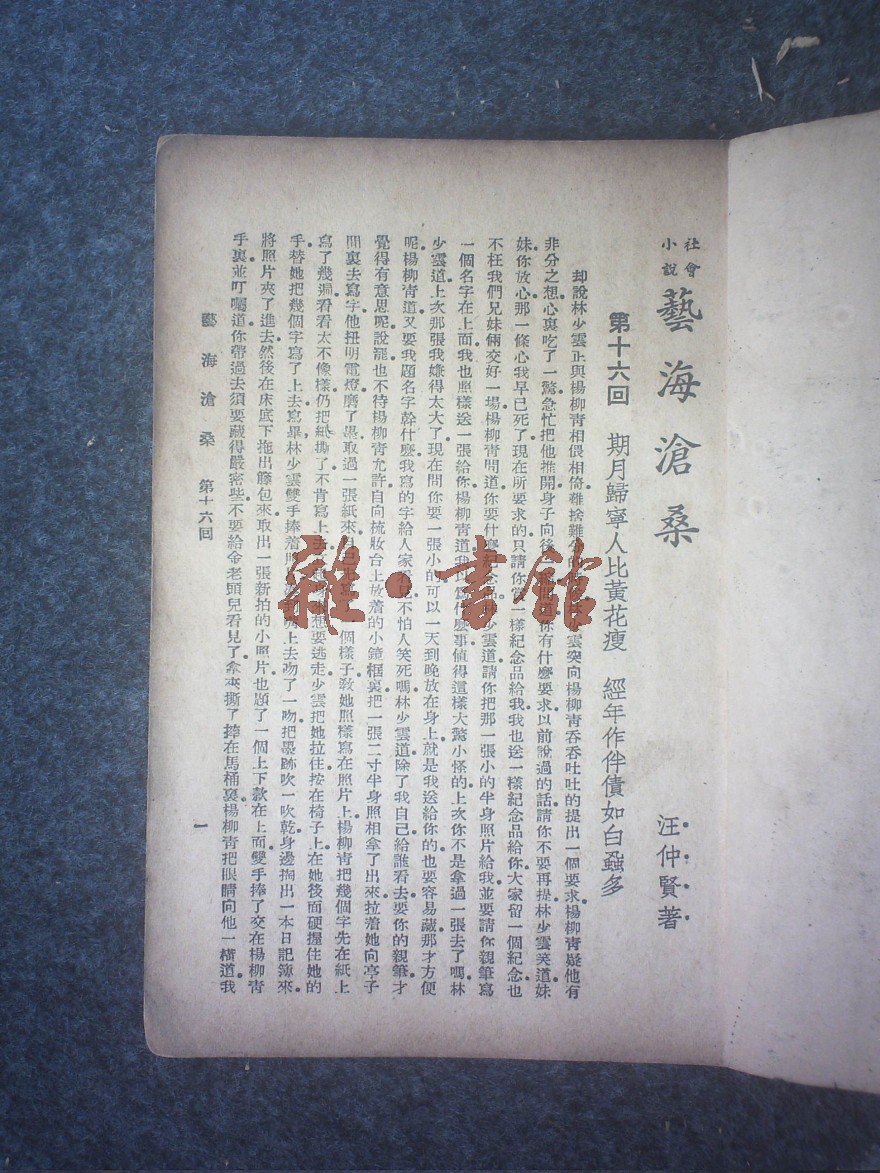 社會
小說
藝海滄桑
汪仲賢著
第十六回 期月歸寧人比黃花瘦 經年作伴債如白蝨多
却說林少雲正與楊柳青相偎相倚難捨難分的 雲突向楊柳青吞吞吐吐的提出一個要求楊柳青疑他有
非分之想心裏吃了一驚急忙把他推開身子向後 你有什麼要求以前說過的話請你不要再提林少雲笑道妹
妹你放心那一條心我早已死了現在所要求的只請你當一樣紀念品給我我也送一樣紀念品給你大家留一個紀念也
不枉我們兄妹倆交好一場楊柳青問道你要什麼 少雲道請你把那一張小的半身照片給我並要請你親筆寫
一個名字在上面我也照樣送一張給你楊柳青道我以爲什麼事値得這樣大驚小怪的上次你不是拿過一張去了嗎林
少雲道上次那張我嫌得太大了現在問你要一張小的可以一天到晚放在身上就是我送給你的也要容易藏那才方便
呢楊柳青道又要我題名字幹什麼我寫的字給人家看見不怕人笑死嗎林少雲道除了我自己給誰看去要你的親筆才
覺得有意思呢說罷也不待楊柳青允許自向梳妝台上放着的小鏡框裏把一張二寸半身照相拿了出來拉着她向亭子
間裏去寫字他扭明電燈磨了墨取過一張紙來 個樣子教她照樣寫在照片上楊柳青把幾個字先在紙上
寫了幾遍看看太不像樣仍把紙撕了不肯寫上去 想要逃走少雲把她拉住按在椅子上在她後面硬握住她的
手替她把幾個字寫了上去寫畢林少雲雙手捧着照 上去吻了一吻把墨跡吹一吹乾身邊掏出一本日記簿來
將照片夾了進去然後在床底下拖出籐包來取出一張新拍的小照片也題了一個上下款在上面雙手捧了交在楊柳青
手裏並叮囑道你帶過去須要藏得嚴密些不要給金老頭兒看見了拿來撕了摔在馬桶裏楊柳青把眼睛向他一橫道我
藝海滄桑 第十六回
一
雜·書館